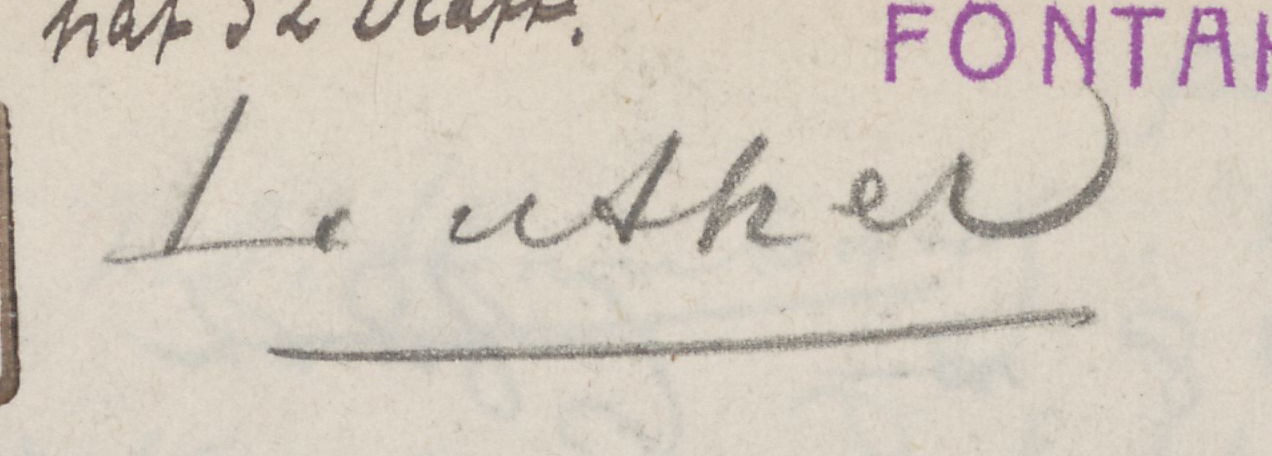 hat 32 Blatt.
FONTA
Leuthen